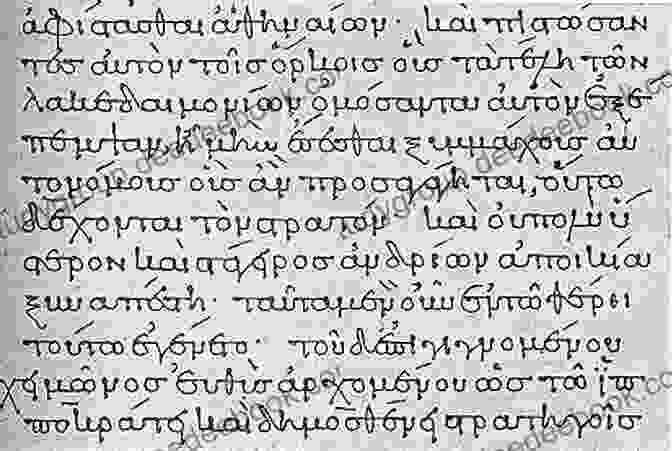 ἀφίστασθαι ἀθηναίων· καὶ πιστώσαν
τεσ αὐτὸν τοῖσ ὅρκοισ οὓσ τὰ τέλη τῶν
λακεδαιμονίων ὀμόσαντα αὐτὸν ἐξέ
πεμψαν, ἦ μὴν ἔσεσθαι ξυμμάχουσ αὐ
τονόμουσ οὓσ ἂν προσαγάγηται, οὕτω
δέχονται τὸν στρατόν καὶ οὐ πολὺ ὕ
στερον καὶ στάγειροσ ἀνδρίων ἀποικία
ξυναπέστη· ταῦτα μὲν οὖν ἐν τῶ θέρει
τούτω ἐγένετο· τοῦ δ' ἐπιγιγνομένου
χειμῶνοσ εὐθὺσ ἀρχομένου ὡσ τῶ ἱπ
ποκράτει καὶ δημοσθένει στρατηγοῖσ
studygroup.dendeebook.com